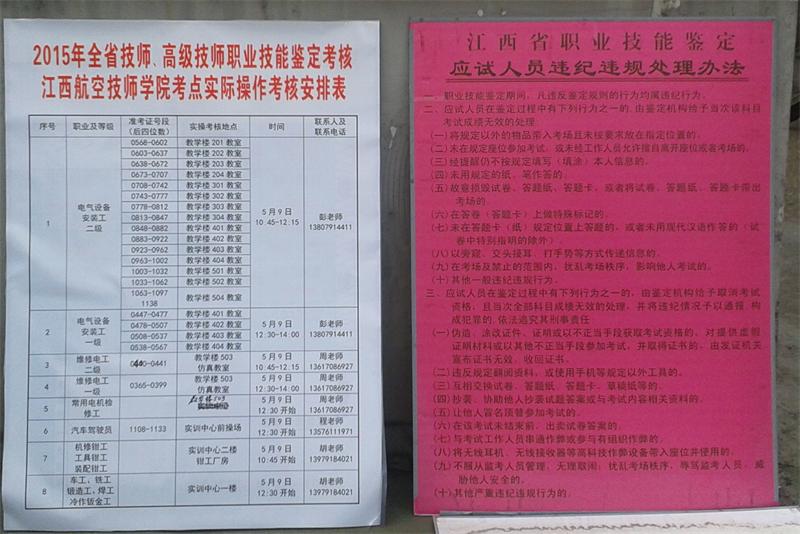 2015年全省技师、高级技师职业技能鉴定考核
江西航空技师学院考点实际操作考核安排表
序号 职业及等级 准考证号段（后四位数） 实操考核地点 时间 联系人及联系电话
1 电气设备安装工二级 5月9日 10:45-12:15 彭老师 13807914411
0568-0602 教学楼 201 教室
0603-0637 教学楼 202 教室
0638-0672 教学楼 203 教室
0673-0707 教学楼 204 教室
0708-0742 教学楼 301 教室
0743-0777 教学楼 302 教室
0778-0812 教学楼 303 教室
0813-0847 教学楼 304 教室
0848-0882 教学楼 401 教室
0883-0922 教学楼 402 教室
0923-0962 教学楼 403 教室
0963-1002 教学楼 404 教室
1003-1032 教学楼 501 教室
1033-1062 教学楼 502 教室
1063-1097 1138 教学楼 504 教室
2 电气设备安装工一级 5月9日 12:30-14:00 彭老师 13807914411
0447-0477 教学楼 401 教室
0478-0507 教学楼 402 教室
0508-0537 教学楼 403 教室
0538-0567 教学楼 404 教室
3 维修电工二级 0441 教学楼 503 仿真教室 5月9日 10:45-12:15 周老师 13617086927
4 维修电工一级 0365-0399 教学楼 503 仿真教室 5月9日 12:30-14:00 周老师 13617086927
5 常用电机检修工 5月9日 12:30 开始 周老师 13617086927
6 汽车驾驶员 1108-1133 实训中心前操场 5月9日 12:30 开始 程老师 13576111971
7 机修钳工 工具钳工 装配钳工 实训中心二楼钳工厂房 5月9日 10:45 开始 胡老师 13979184021
8 车工、铣工 锻造工、焊工 冷作钣金工 实训中心一楼 5月9日 12:30 开始 胡老师 13979184021
江西省职业技能鉴定
应试人员违纪违规处理办法
一、职业技能鉴定期间，凡违反鉴定规则的行为均属违纪行为。
二、应试人员在鉴定过程中有下列行为之一的，由鉴定机构给予当次该科目
考试成绩无效的处理
(一)将规定以外的物品带入考场且未按要求放在指定位置的。
(二)未在规定座位参加考试，或未经工作人员允许擅自离开座位或者考场的。
(三)经提醒仍不按规定填写（填涂）本人信息的。
(四)未用规定的纸、笔作答的。
(五)故意损毁试卷、答题纸、答题卡，或者将试卷、答题纸、答题卡带出
考场的。
(六)在答卷（答题卡）上做特殊标记的。
(七)未在答题卡（纸）规定位置上答题的，或者未用现代汉语作答的（试
卷中特别指明的除外）。
(八)以旁窥、交头接耳、打手势等方式传递信息的。
(九)在考场及禁止的范围内，扰乱考场秩序，影响他人考试的。
(十)其他一般违纪违规行为。
三、应试人员在鉴定过程中有下列行为之一的，由鉴定机构给予取消考试
资格，且当次全部科目成绩无效的处理，并将违纪情况予以通报，构
成犯罪的，依法追究其刑事责任
(一)伪造、涂改证件、证明或以不正当手段获取考试资格的，对提供虚假
证明材料或以其他不正当手段参加考试，并取得证书的，由发证机关
宣布证书无效，收回证书。
(二)违反规定翻阅资料，或使用手机等规定以外工具的。
(三)互相交换试卷、答题纸、答题卡、草稿纸等的。
(四)抄袭、协助他人抄袭试题答案或与考试内容相关资料的。
(五)让他人冒名顶替参加考试的。
(六)在该考试未结束前，出卖试卷答案的。
(七)与考试工作人员串通作弊或参与有组织作弊的。
(八)将无线耳机、无线接收器等高科技作弊设备带入座位并使用的。
(九)不服从监考人员管理，无理取闹，扰乱考场秩序，辱骂监考人员，威
胁他人安全的。
(十)其他严重违纪违规行为的。